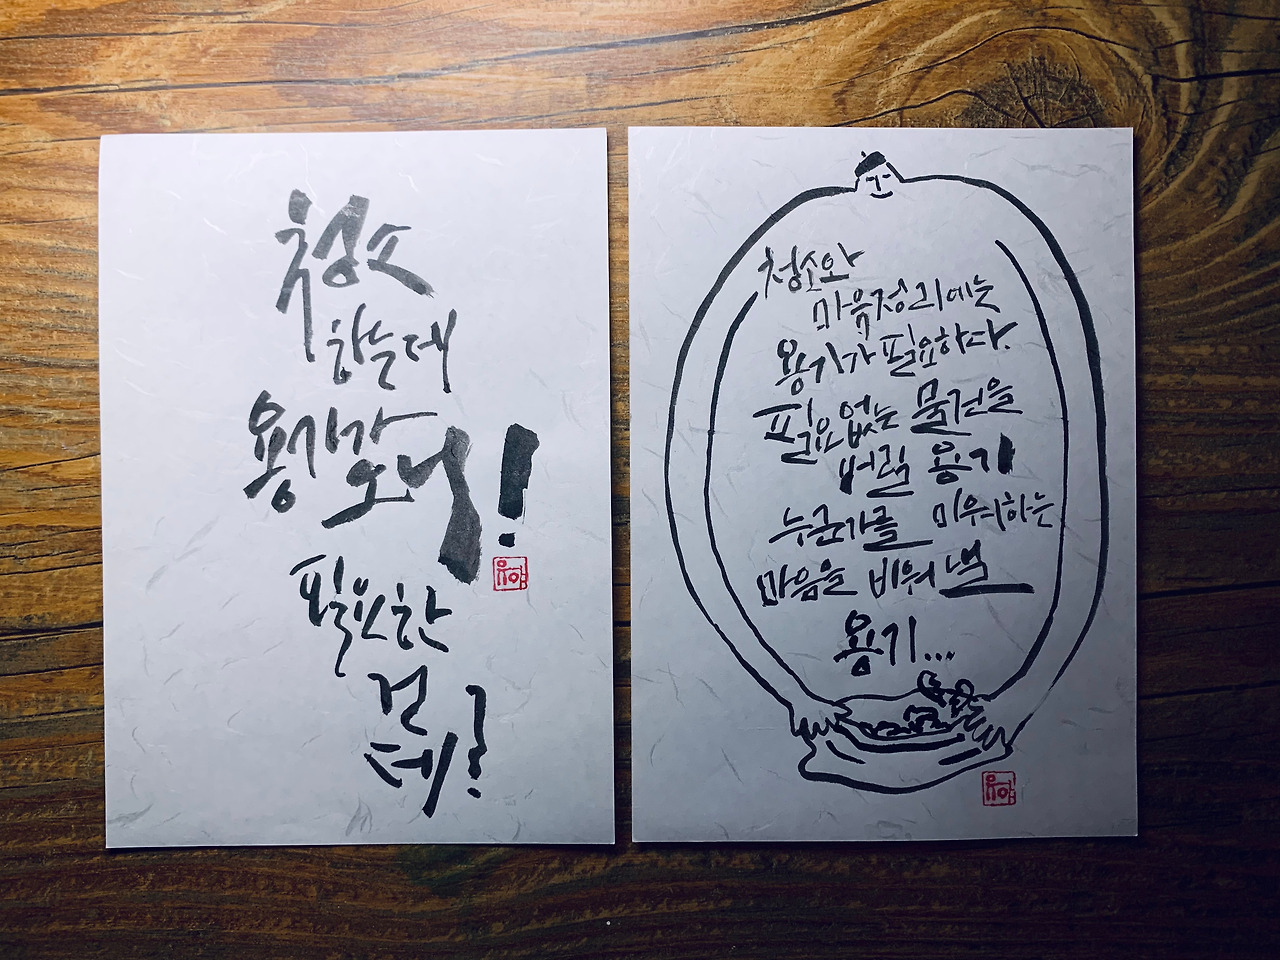 청소
하는데
용기가
오니!
필요한
건
데?
청소와
마음정리에는
용기가 필요하다.
필요없는 물건을
버릴 용기
누군가를 미워하는
마음을 비워낼
용기...